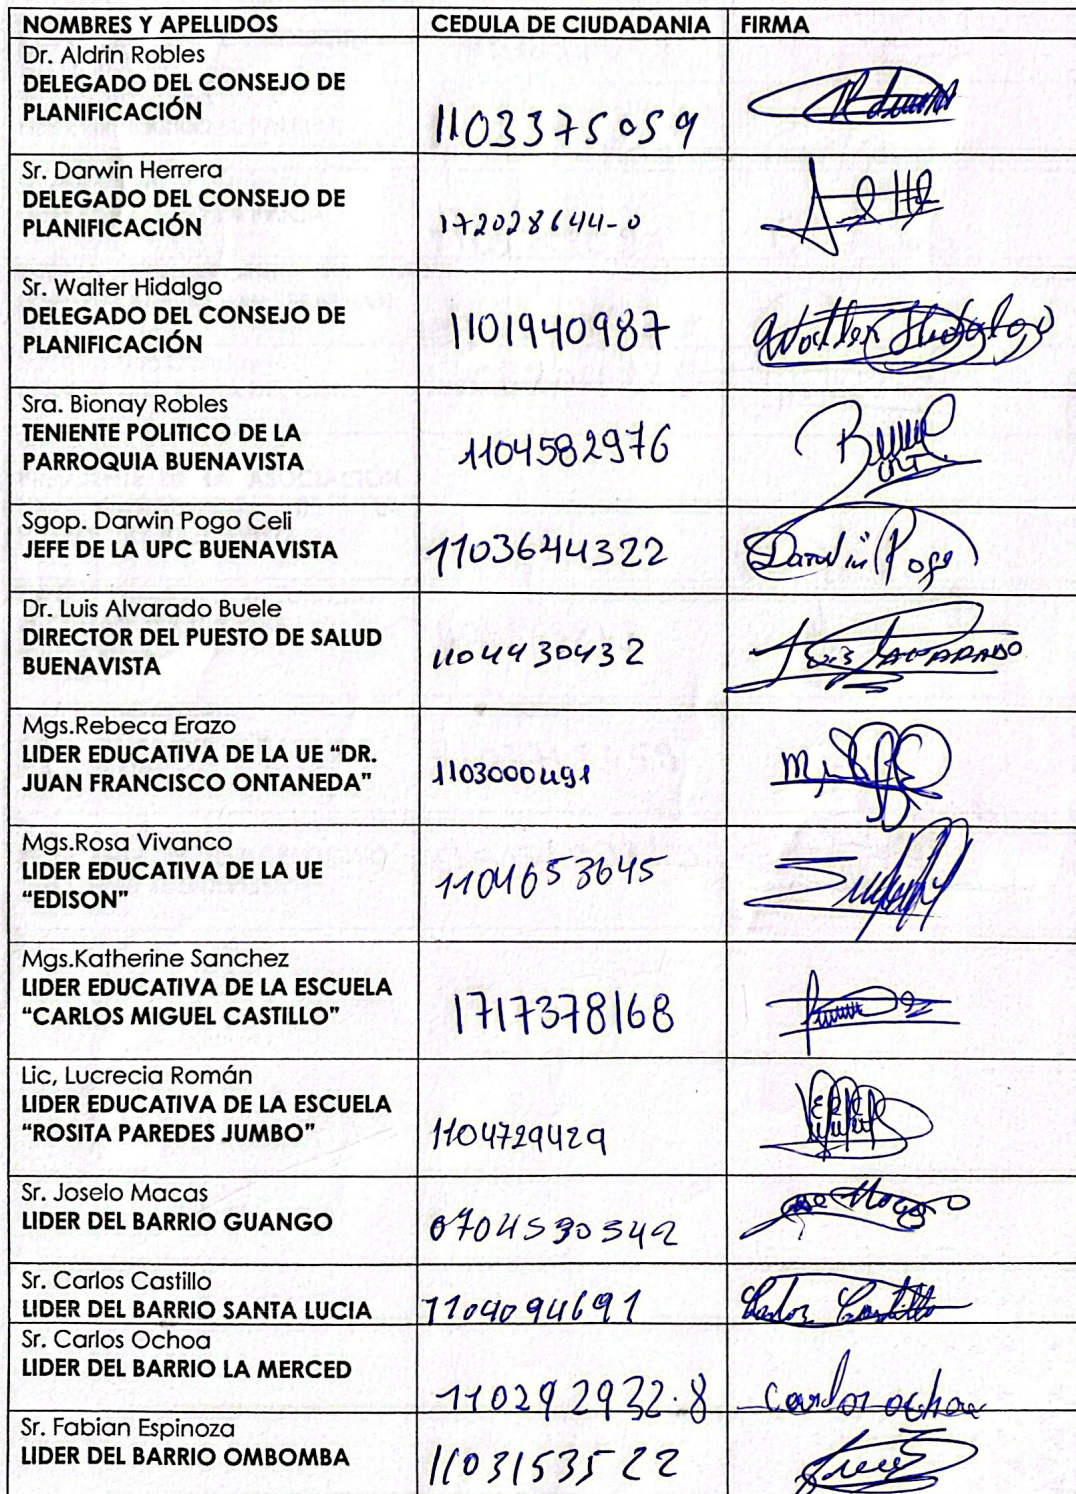 NOMBRES Y APELLIDOS CEDULA DE CIUDADANIA FIRMA
Dr. Aldrin Robles
DELEGADO DEL CONSEJO DE
PLANIFICACIÓN
1103375059
Sr. Darwin Herrera
DELEGADO DEL CONSEJO DE
PLANIFICACIÓN
172028644-0
Sr. Walter Hidalgo
DELEGADO DEL CONSEJO DE
PLANIFICACIÓN
1101940987
Walter Hidalgo
Sra. Bionay Robles
TENIENTE POLITICO DE LA
PARROQUIA BUENAVISTA
1104582976
Sgop. Darwin Pogo Celi
JEFE DE LA UPC BUENAVISTA
1103644322
Darwin Pogo
Dr. Luis Alvarado Buele
DIRECTOR DEL PUESTO DE SALUD
BUENAVISTA
1104430432
Luis ALVARADO
Mgs.Rebeca Erazo
LIDER EDUCATIVA DE LA UE “DR.
JUAN FRANCISCO ONTANEDA”
1103000491
Mgs.Rosa Vivanco
LIDER EDUCATIVA DE LA UE
“EDISON”
1104653645
Mgs.Katherine Sanchez
LIDER EDUCATIVA DE LA ESCUELA
“CARLOS MIGUEL CASTILLO”
1717378168
Lic, Lucrecia Román
LIDER EDUCATIVA DE LA ESCUELA
“ROSITA PAREDES JUMBO”
1104729429
Sr. Joselo Macas
LIDER DEL BARRIO GUANGO
0704530342
Sr. Carlos Castillo
LIDER DEL BARRIO SANTA LUCIA
1104094691
Carlos Castillo
Sr. Carlos Ochoa
LIDER DEL BARRIO LA MERCED
110292932-8
Carlos ochoa
Sr. Fabian Espinoza
LIDER DEL BARRIO OMBOMBA
1103153522